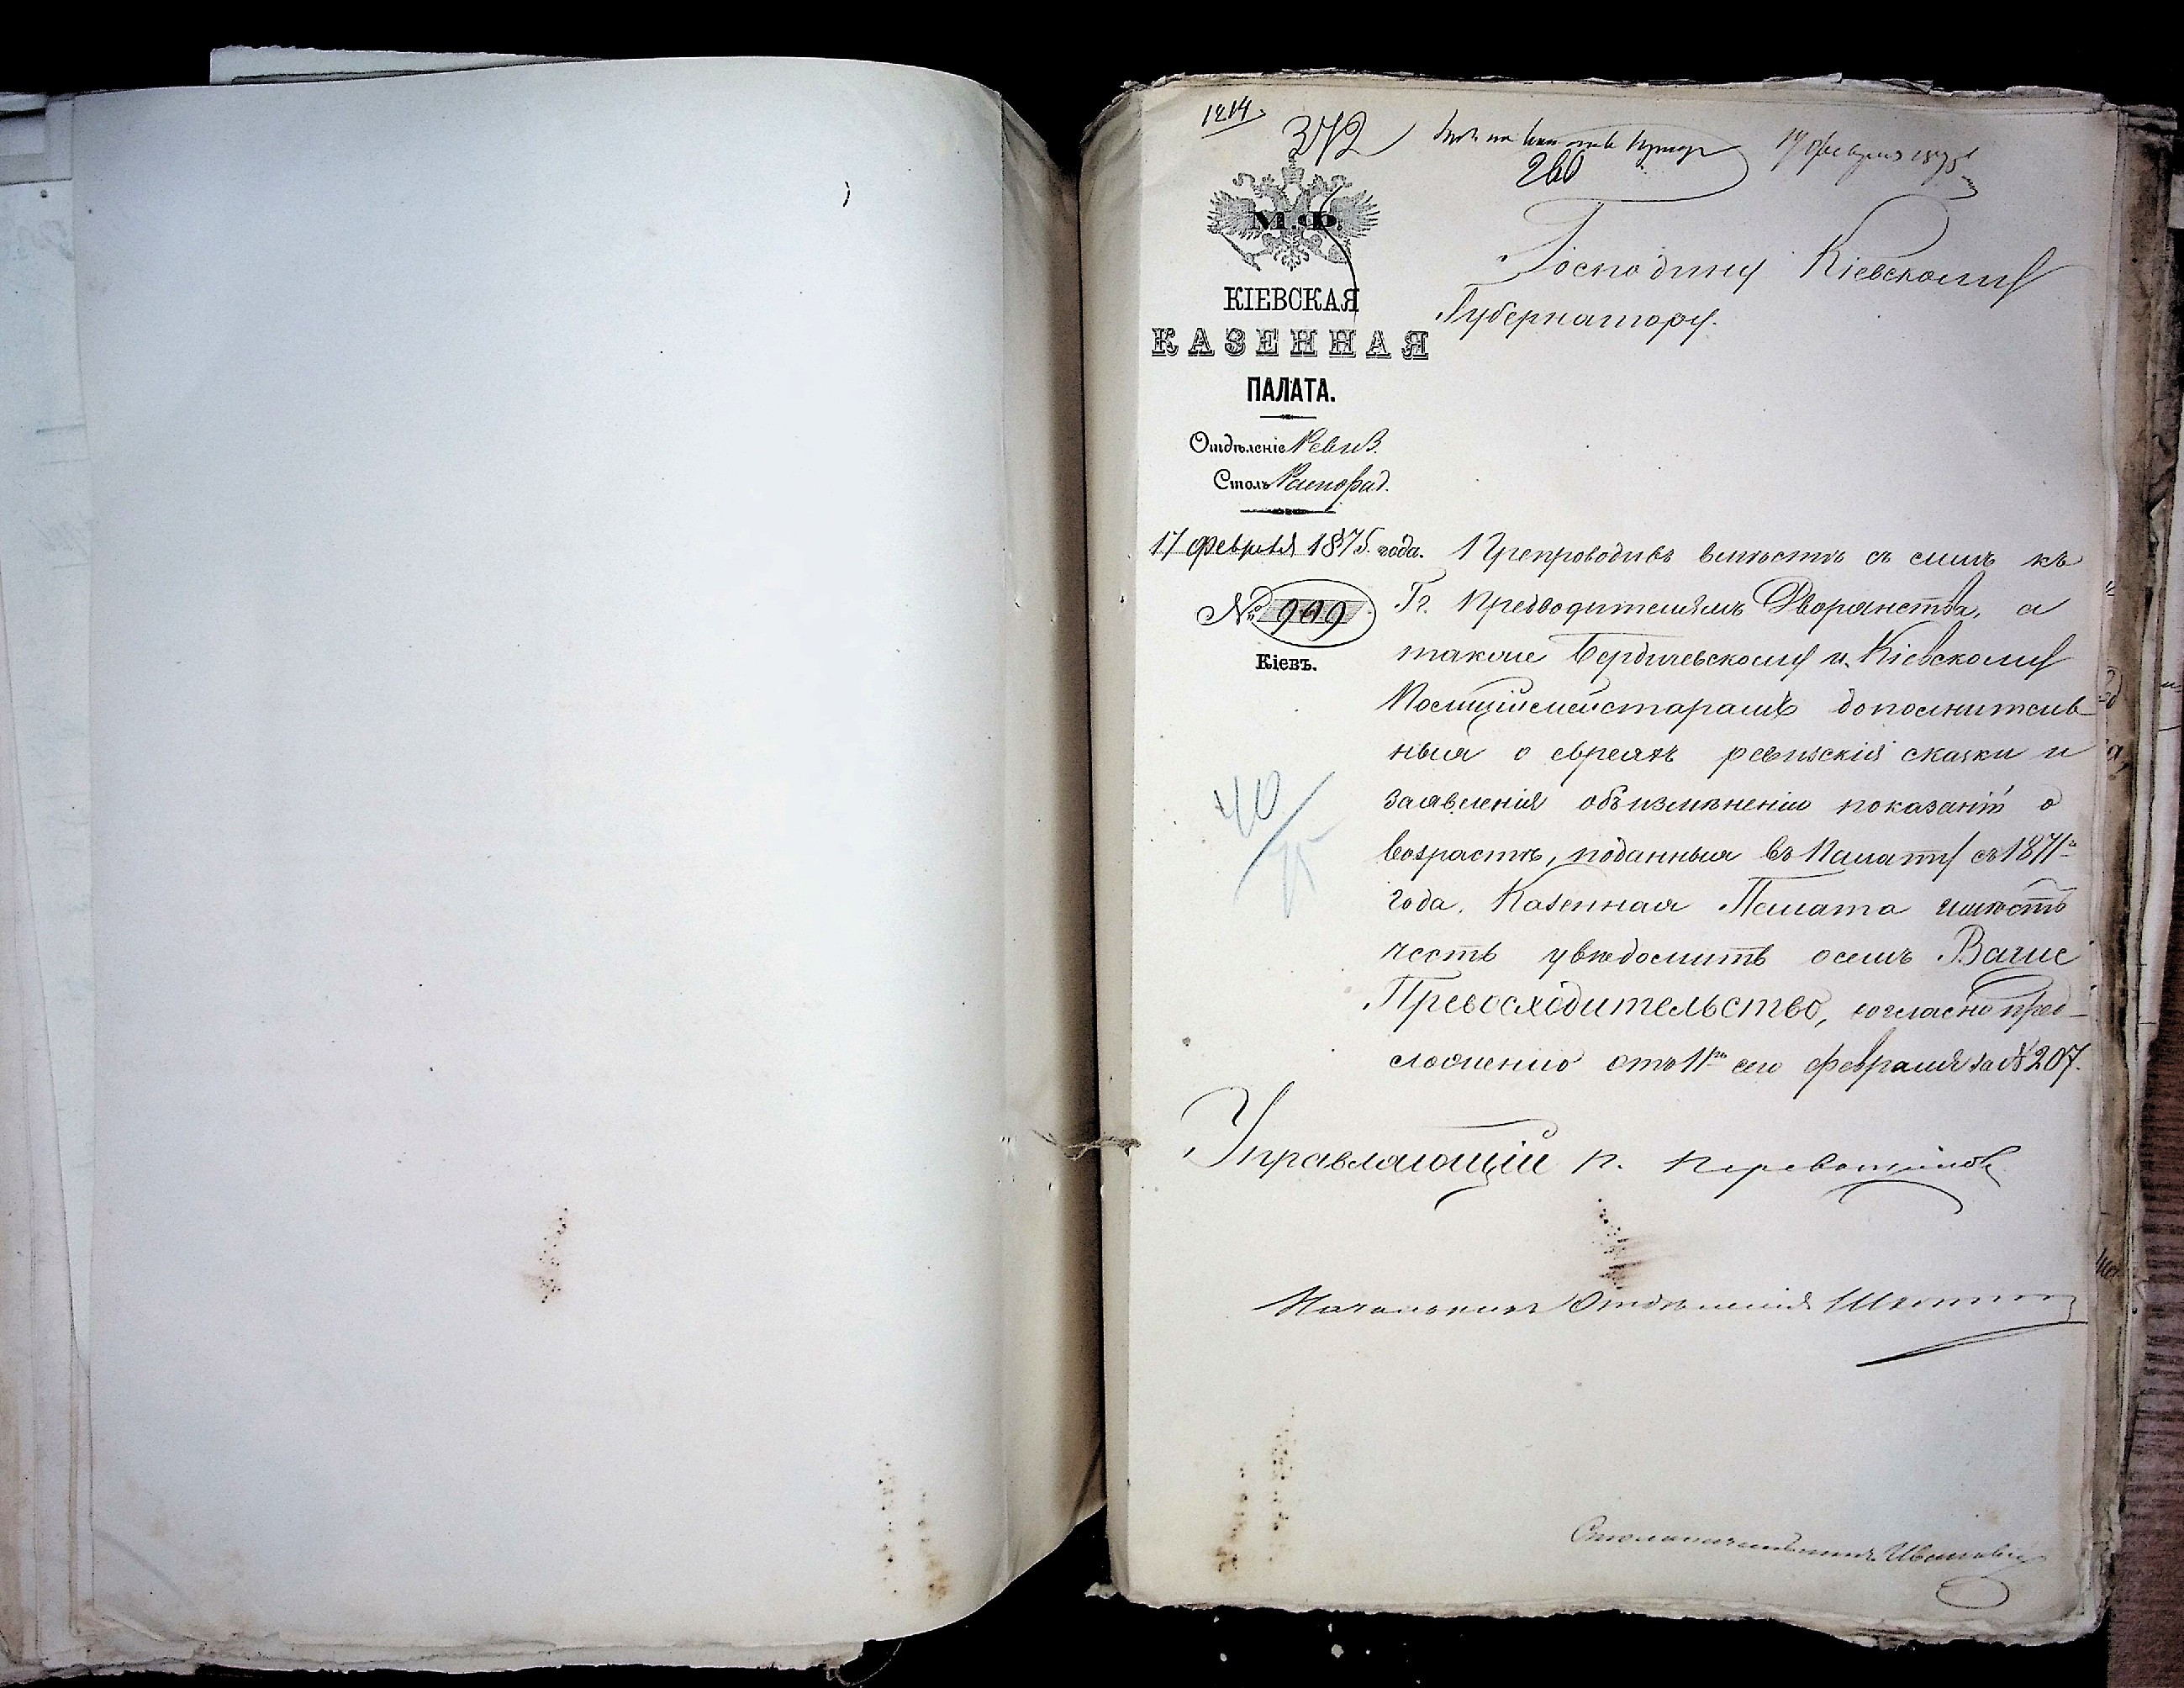 1214
372
260
17 февраля 1875
М.Ф.
Господину Кіевскому
Губернатору.
КІЕВСКАЯ
КАЗЕННАЯ
ПАЛАТА.
Отдѣленіе Ревиз.
Столъ Распоряд.
17 февраля 1875 года.
№ 909
Кіевъ.
40/75
Препроводивъ вмѣстѣ съ симъ къ
Гг. Предводителямъ Дворянства, а
также Бердичевскому и Кіевскому
Полиціймейстерамъ дополнитель-
ныя о евреяхъ ревизскія сказки и
заявленія объ измѣненіи показаній о
возрастѣ, поданныя въ Палату съ 1871го
года, Казенная Палата имѣетъ
честь увѣдомить о семъ Ваше
Превосходительство, согласно пред-
ложенію отъ 11го сего февраля за № 207.
Управляющій П. Перевощиковъ
Начальникъ Отдѣленія
Столоначальникъ